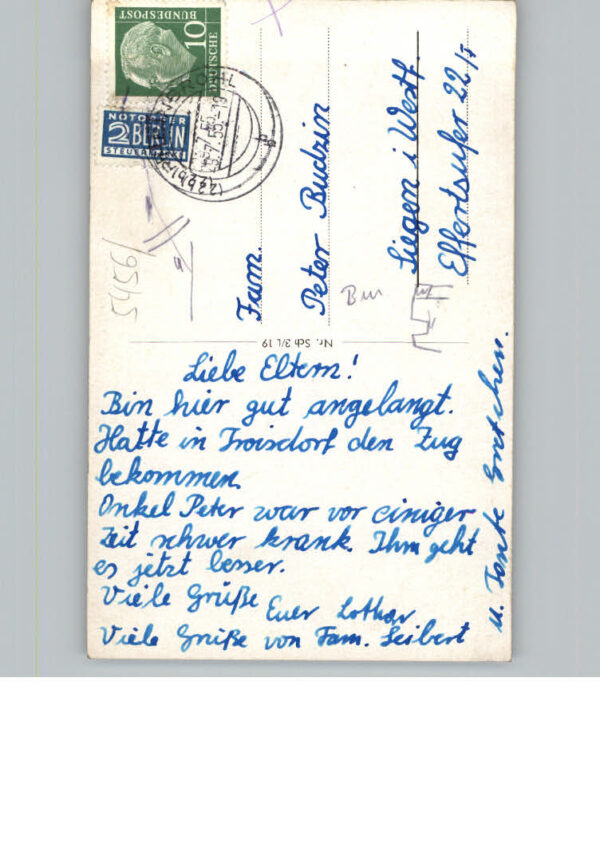 10
DEUTSCHE
BUNDESPOST
NOTOPFER
2 BERLIN
STEUERMARKE
Fam.
Peter Budzin
Siegen i. Westf.
Effertsufer 22/I
5456
Nr. Sch 3/L 19
Liebe Eltern!
Bin hier gut angelangt.
Hatte in Troisdorf den Zug
bekommen.
Onkel Peter war vor einiger
Zeit schwer krank. Ihm geht
es jetzt besser.
Viele Grüße
Euer Lothar
Viele Grüße von Fam. Seibert
u. Tante